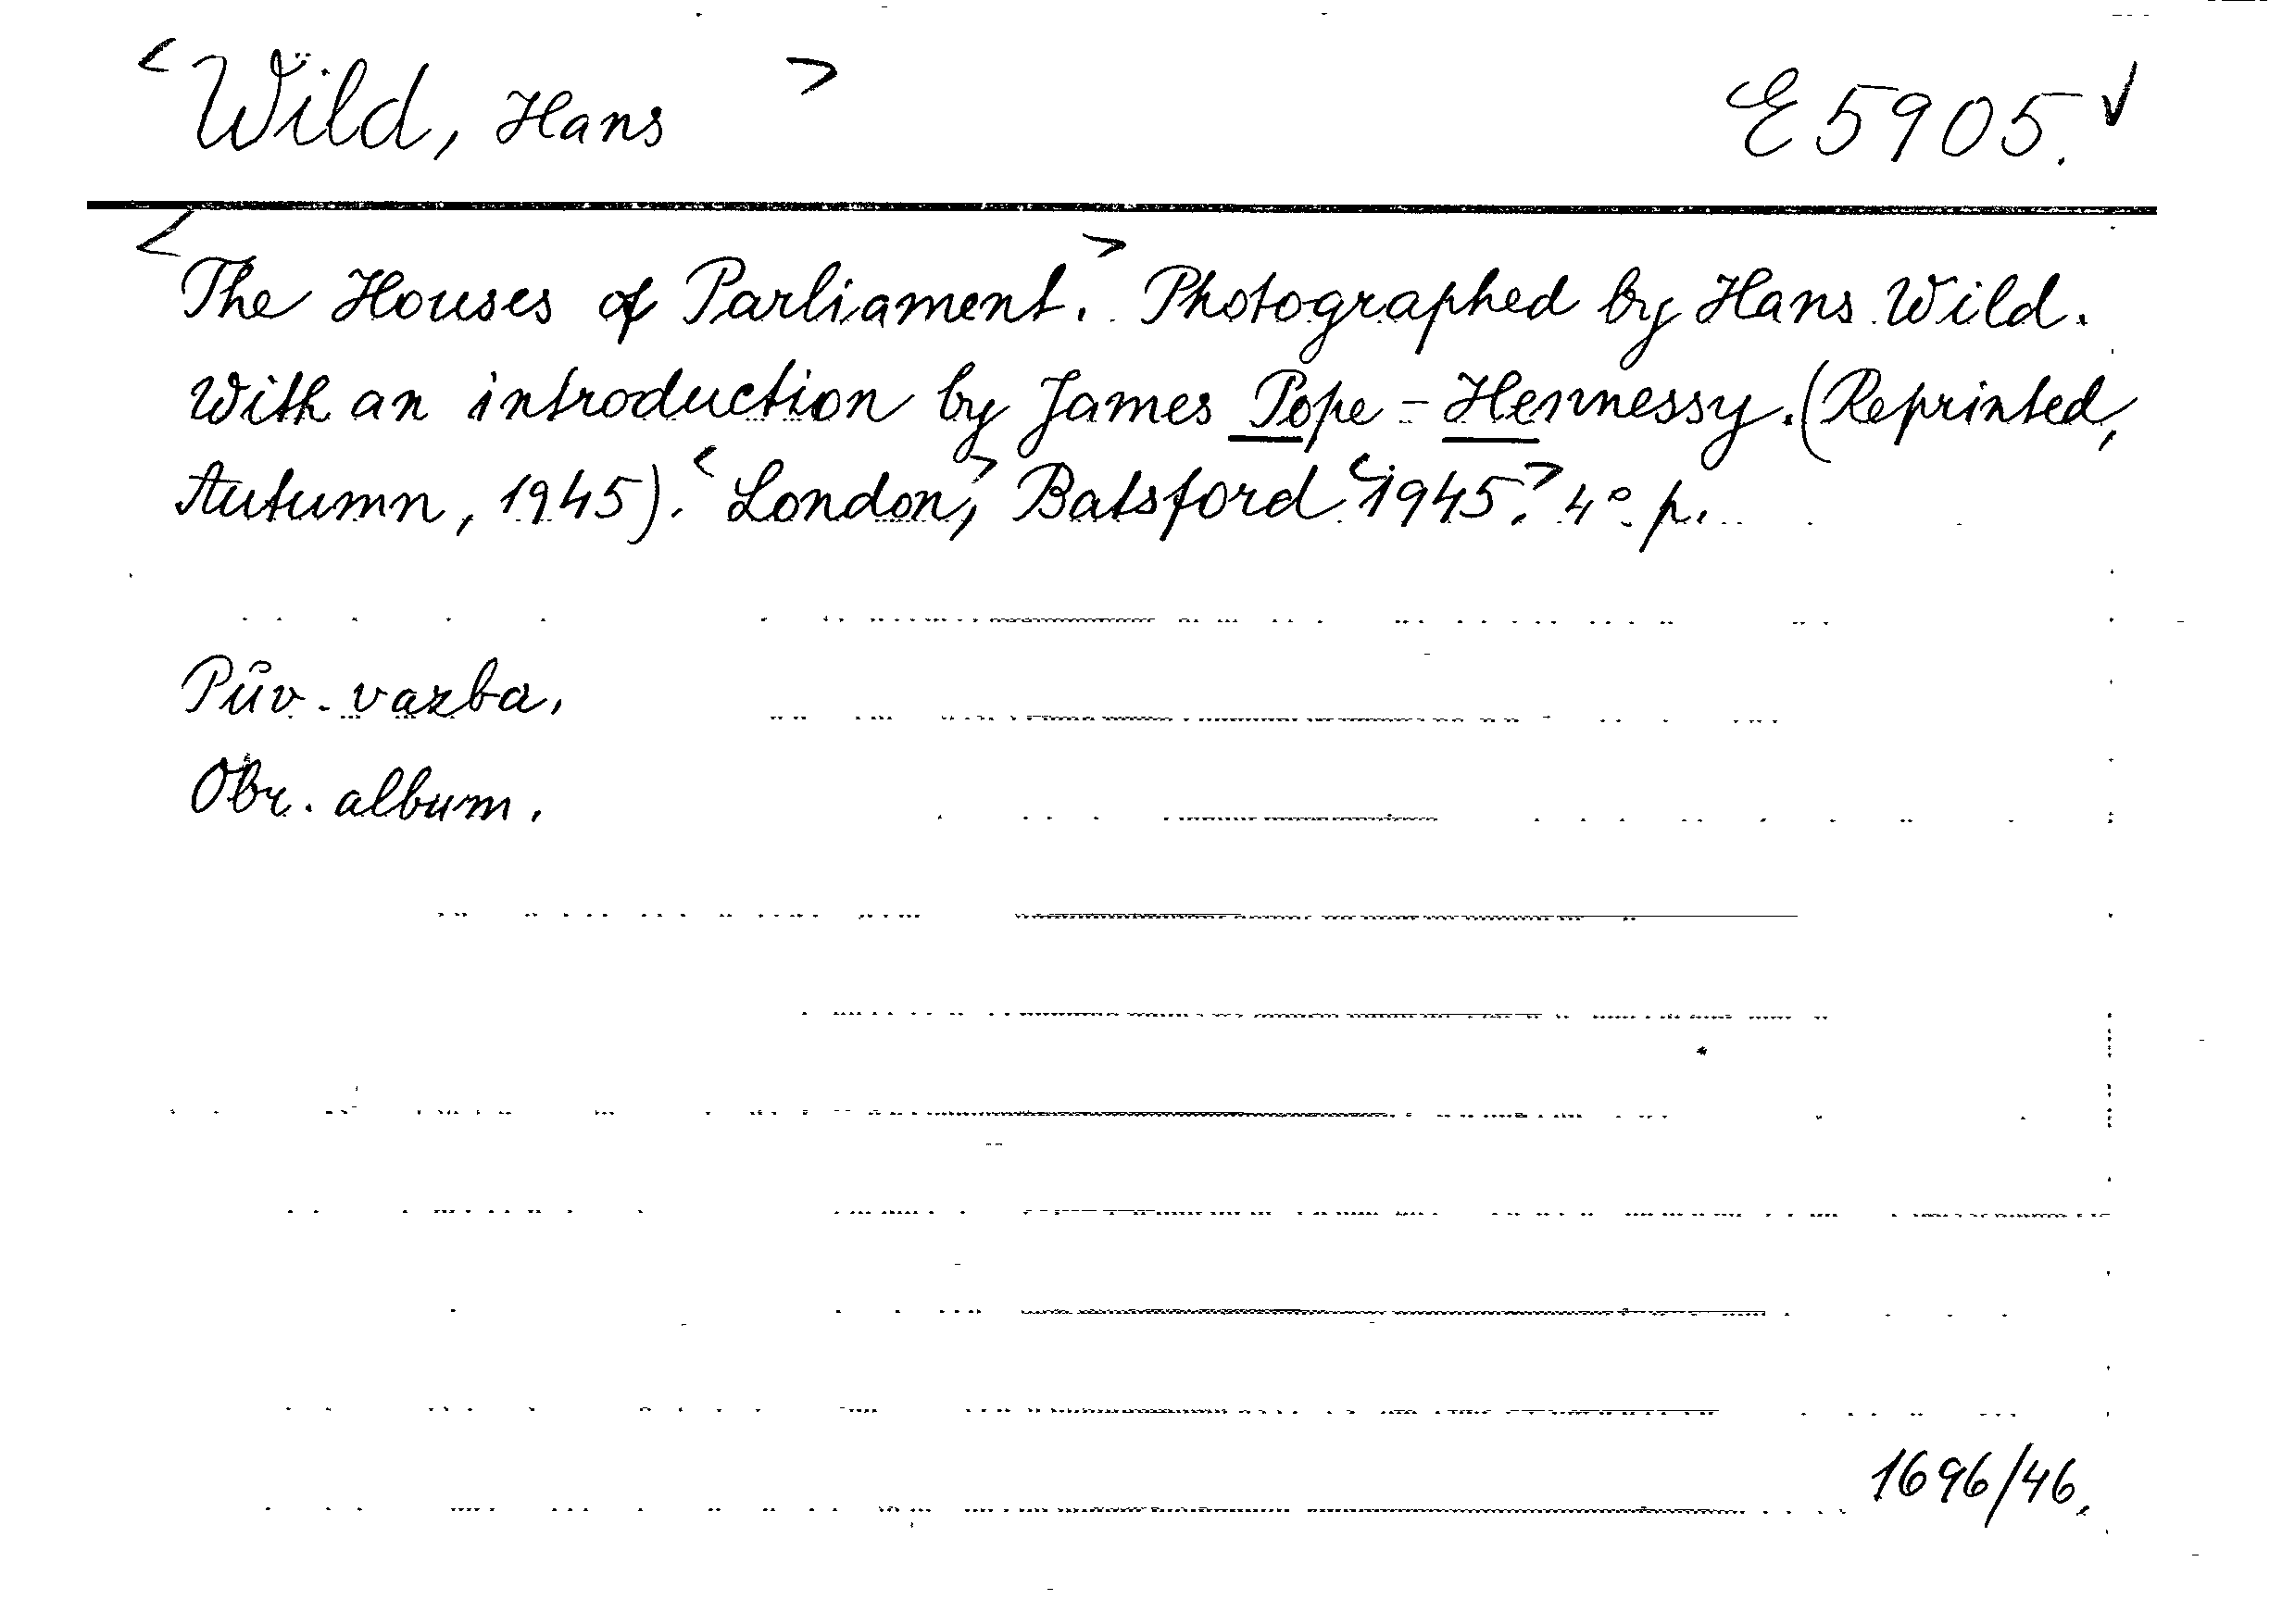 <Wild, Hans> E 5905.✓
<The Houses of Parliament.> Photographed by Hans Wild.
With an introduction by James Pope-Hennessy. (Reprinted,
Autumn, 1945). <London,> Batsford <1945.> 4° p.
Pův. vazba.
Obr. album.
1696/46.